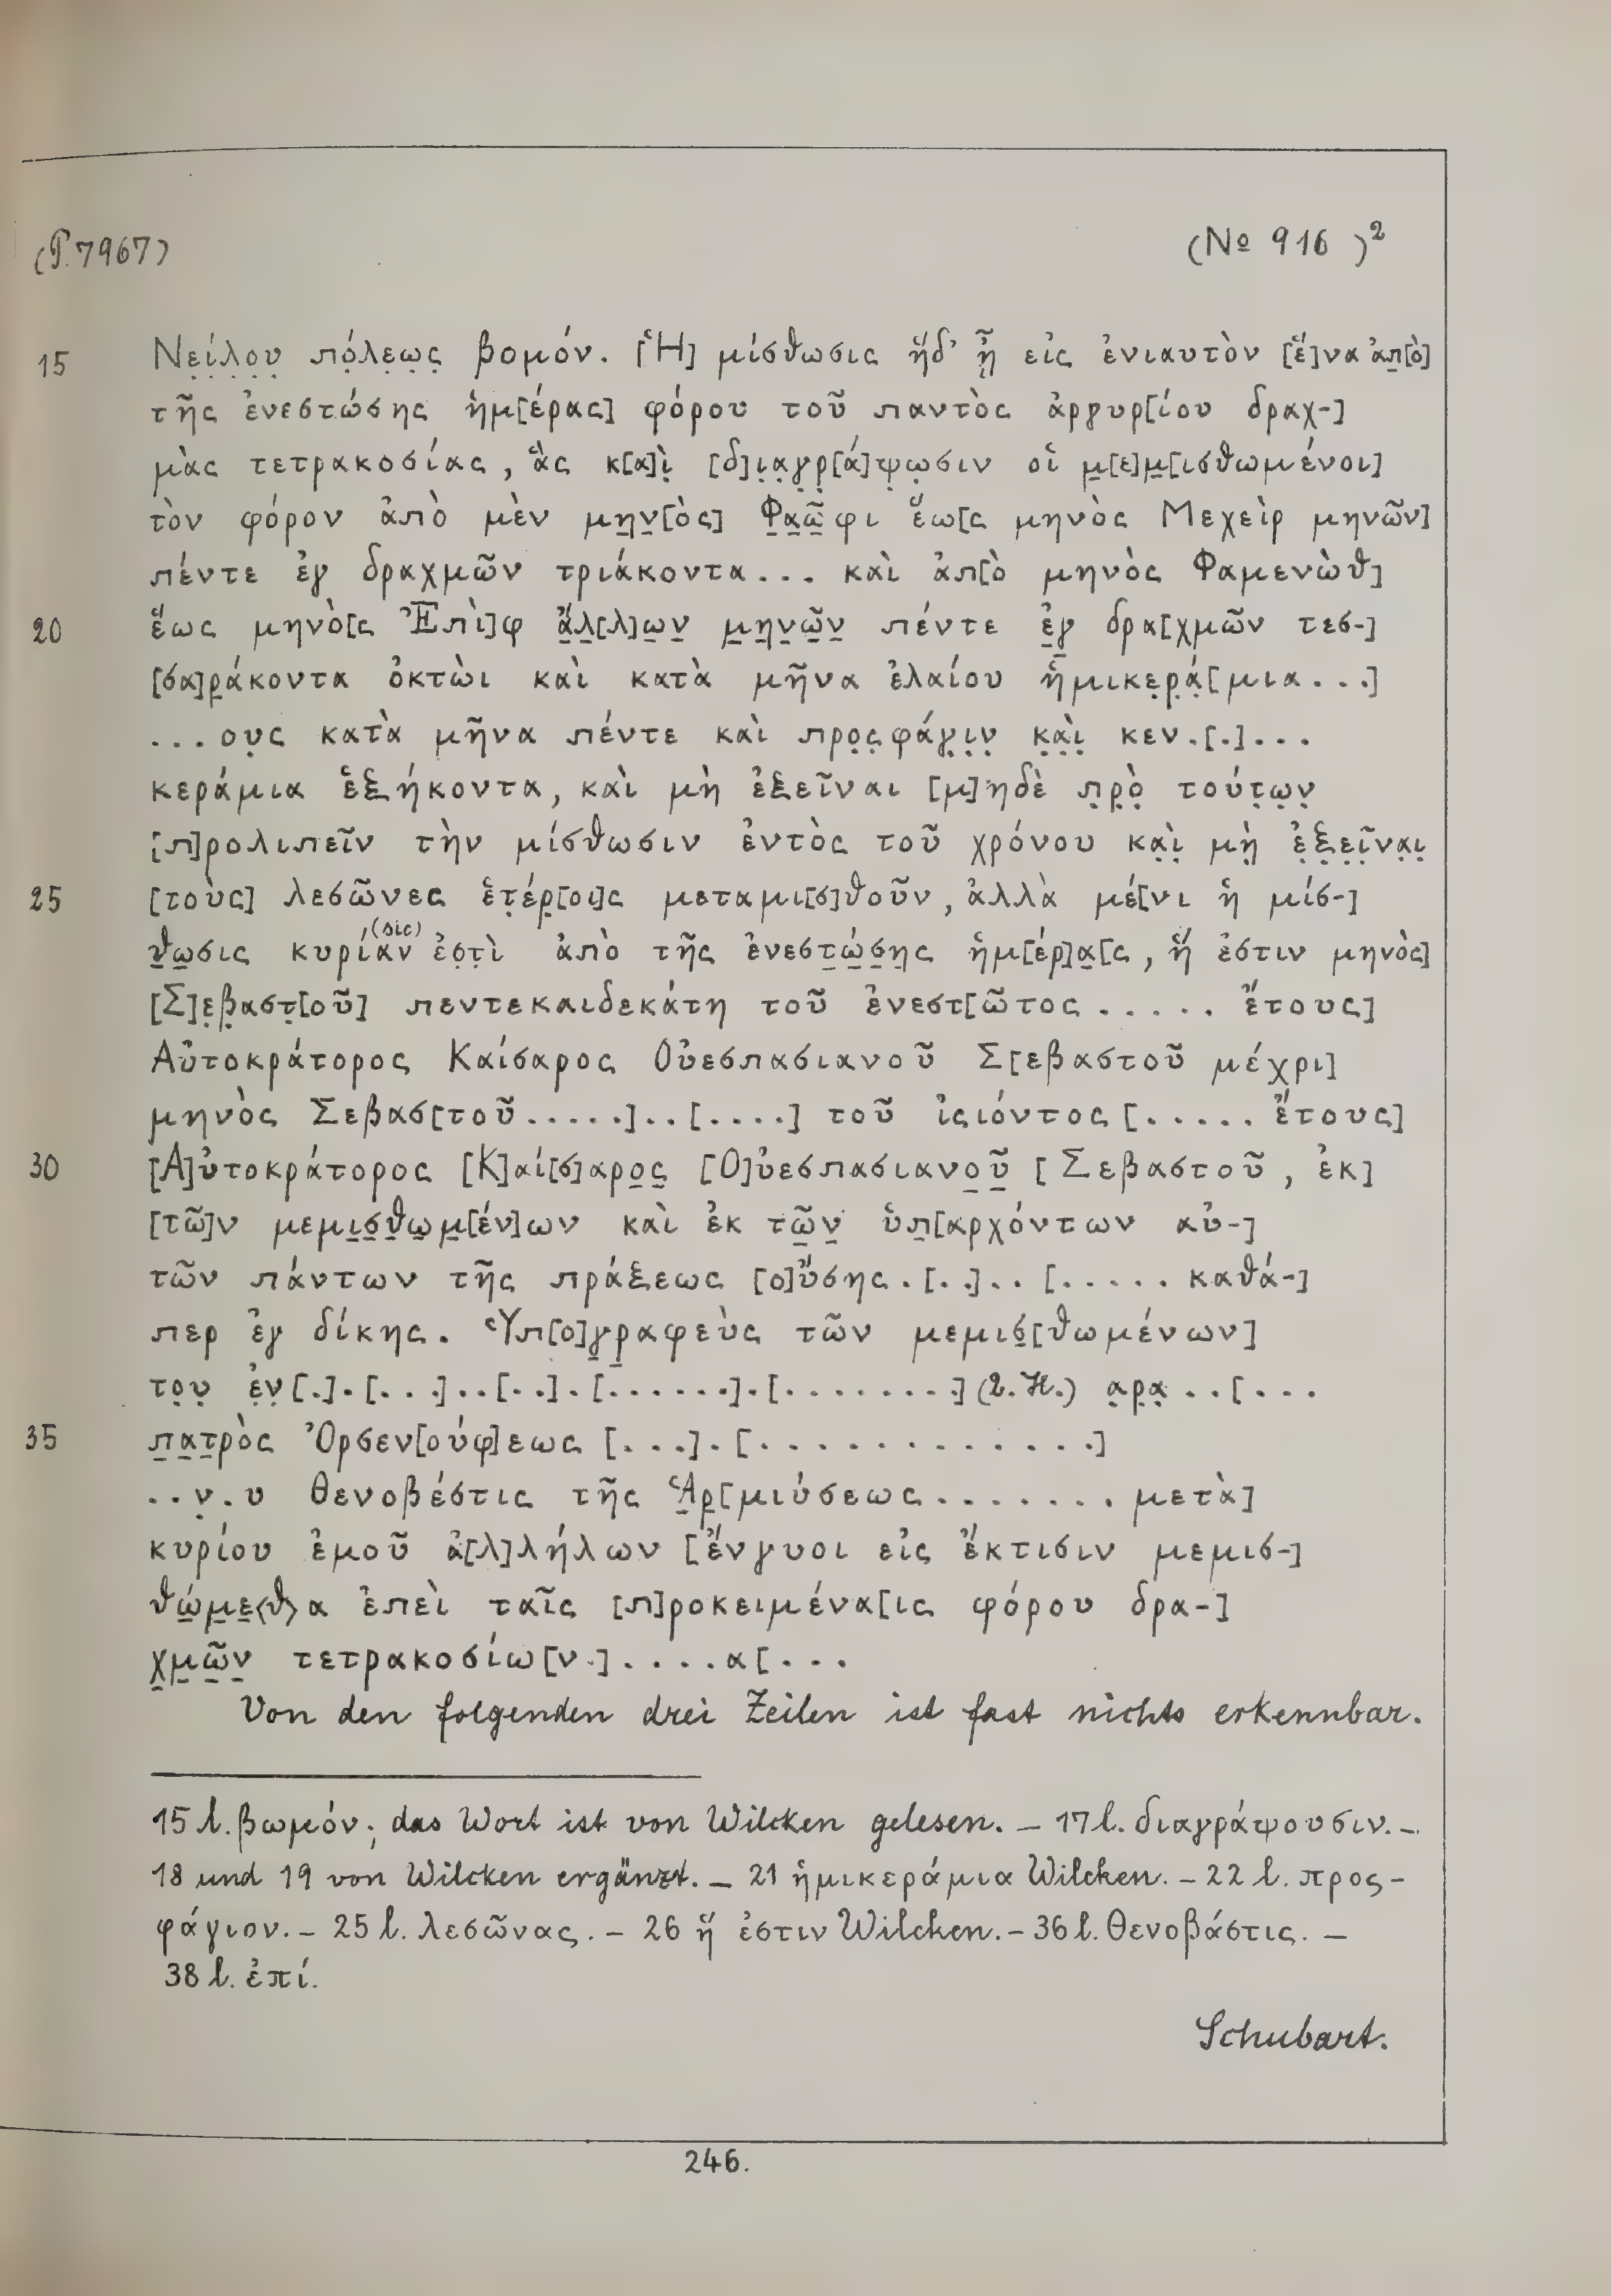 (P. 7967) (No 916)²
15 Ν̣ε̣ί̣λ̣ο̣υ̣ π̣ό̣λ̣ε̣ω̣ς̣ βομόν. [Ἡ] μίσθωσις ἥδ' ᾖ̣ εἰς ἐνιαυτὸν [ἕ]να ἀπ̣[ὸ]
τῆς ἐνεστώσης ἡμ[έρας] φόρου τοῦ παντὸς ἀργυρ[ίου δραχ-]
μὰς τετρακοσίας, ἃς κ[α]ὶ̣ [δ]ι̣α̣γ̣ρ̣[ά]ψ̣ω̣σιν οἱ μ̣[ε]μ̣[ισθωμένοι]
τὸν φόρον ἀπὸ μὲν μη̣ν̣[ὸς] Φ̣α̣ῶ̣φι ἕω[ς μηνὸς Μεχεὶρ μηνῶν]
πέντε ἐγ δραχμῶν τριάκοντα... καὶ ἀπ[ὸ μηνὸς Φαμενὼθ]
20 ἕως μηνὸ[ς Ἐπὶ]φ ἄ̣λ̣[λ]ω̣ν̣ μ̣η̣ν̣ῶ̣ν̣ πέντε ἐ̣γ̣ δρα[χμῶν τεσ-]
[σα]ρ̣άκοντα ὀκτὼι καὶ κατὰ μῆνα ἐλαίου ἡμικε̣ρ̣ά̣[μια...]
...ου̣ς κατὰ μῆνα πέντε καὶ προ̣ς̣φάγ̣ι̣ν̣ κ̣α̣ὶ̣ κεν.[.]...
κεράμια ἑξήκοντα, καὶ μὴ ἐξεῖναι [μ]ηδὲ π̣ρ̣ὸ̣ τούτ̣ω̣ν̣
[π]ρολιπεῖν τὴν μίσθωσιν ἐντὸς τοῦ χρόνου κα̣ὶ̣ μὴ̣ ἐ̣ξ̣ε̣ῖ̣να̣ι̣
25 [τοὺς] λεσῶνες ἑτ̣έρ̣[οι]ς μεταμι[σ]θοῦν, ἀλλὰ μέ[νι ἡ μίσ-]
θ̣ω̣σις κυρίαν (sic) ἐσ̣τ̣ὶ ἀπὸ τῆς ἐνεστ̣ώ̣σ̣η̣ς ἡμ[έρ]α̣[ς, ἥ ἐστιν μηνὸς]
[Σ]ε̣β̣αστ̣[οῦ] πεντεκαιδεκάτη τοῦ ἐνεστ[ῶτος ..... ἔτους]
Αὐτοκράτορος Καίσαρος Οὐεσπασιανοῦ Σ[εβαστοῦ μέχρι]
μηνὸς Σεβασ[τοῦ.....]..[....] τοῦ ἰςιόντος [..... ἔτους]
30 [Α]ὐτοκράτορος [Κ]αί[σ]αρο̣ς̣ [Ο]ὐεσπασιανο̣ῦ̣ [Σεβαστοῦ, ἐκ]
[τῶ]ν μεμι̣σ̣θ̣ω̣μ̣[έν]ων καὶ ἐκ τῶ̣ν̣ ὑπ̣[αρχόντων αὐ-]
τῶν πάντων τῆς πράξεως [ο]ὔσης.[..]..[..... καθά-]
περ ἐγ δίκης. Ὑπ[ο]γ̣ρ̣αφεὺς τῶν μεμισ̣[θωμένων]
το̣υ̣ ἐ̣ν̣[.].[...]..[..].[......].[........] (2. H.) α̣ρ̣α̣..[...
35 π̣α̣τ̣ρὸς Ὀρσεν[ούφ]εως [...].[.............]
..ν̣.υ Θενοβέστις τῆς Ἁ̣ρ̣[μιύσεως....... μετὰ]
κυρίου ἐμοῦ ἀ[λ]λήλων [ἔνγυοι εἰς ἔκτισιν μεμισ-]
θώ̣μ̣ε̣<θ>α ἐπεὶ ταῖς [π]ροκειμένα[ις φόρου δρα-]
χ̣μ̣ῶ̣ν̣ τετρακοσίω[ν.]....α[...
Von den folgenden drei Zeilen ist fast nichts erkennbar.
15 l. βωμόν; das Wort ist von Wilcken gelesen. – 17 l. διαγράψουσιν. –
18 und 19 von Wilcken ergänzt. – 21 ἡμικεράμια Wilcken. – 22 l. προς-
φάγιον. – 25 l. λεσῶνας. – 26 ἥ ἐστιν Wilcken. – 36 l. Θενοβάστις. –
38 l. ἐπί.
Schubart.
246.